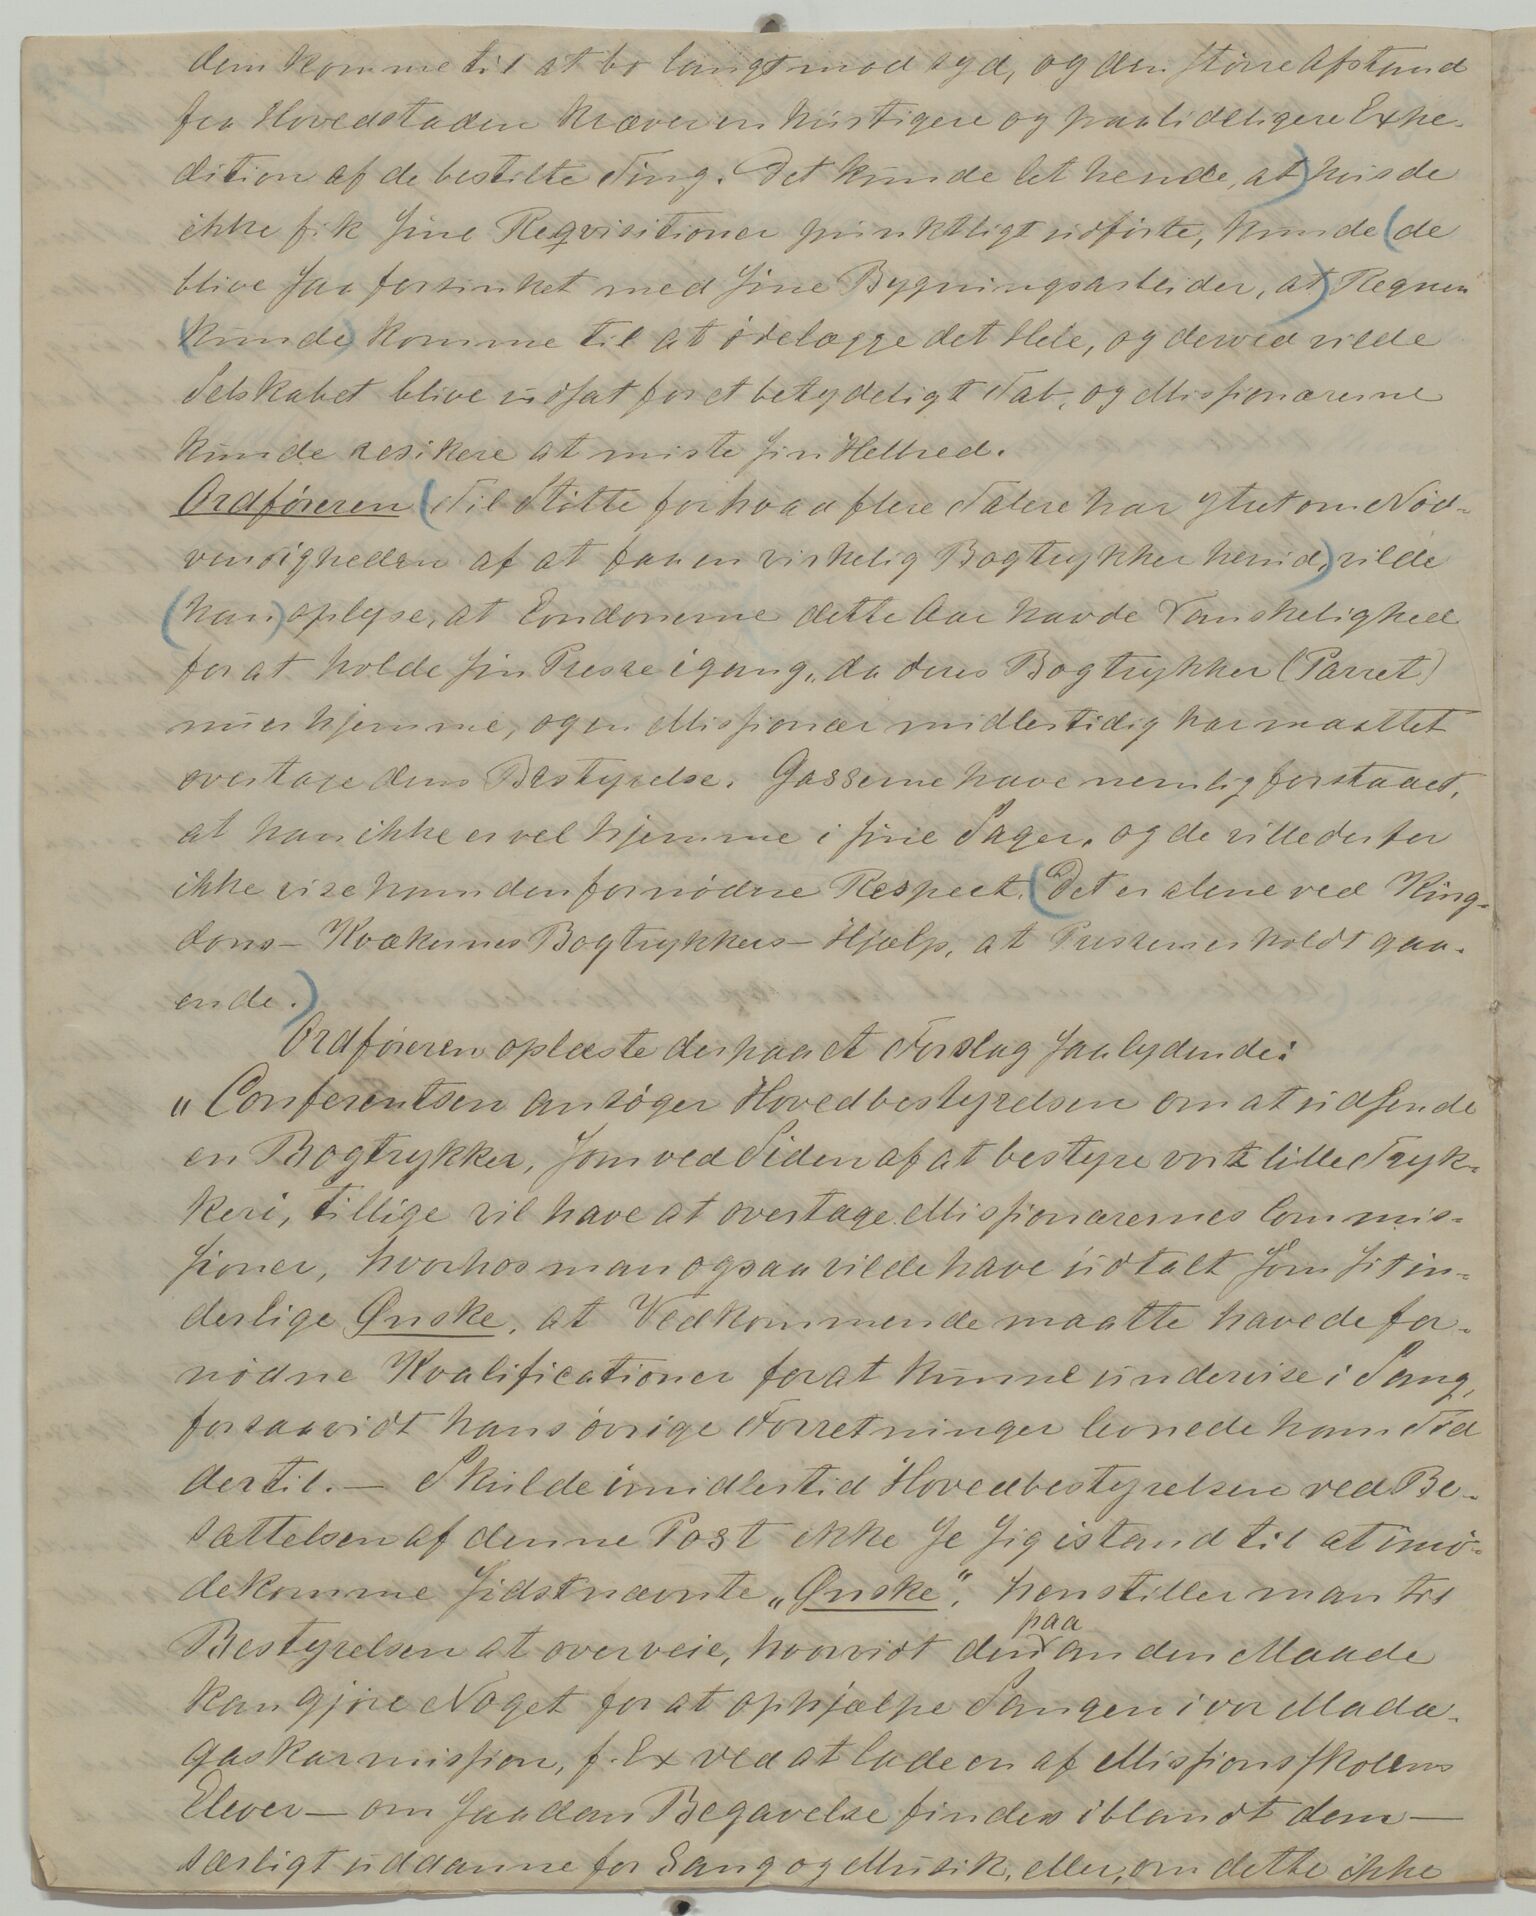 dem komme til at bo langt mod syd, og den större Afstand
fra Hovedstaden kræver en hurtigere og paalideligere Expe-
dition af de bestilte Ting. Det kunde let hende, at) hvis de
ikke fik sine Reqvisitioner punktligt udförte, kunde (de
blive saa forsinket med sine Bygningsarbeider, at) Regnen
(kunde) komme til at ödelægge det Hele, og derved vilde
Selskabet blive udsat for et betydeligt Tab, og Missionærerne
kunde resikere at miste sin Helbred.
Ordföreren (Til Stötte for hvad flere Talere har ytret om Nöd-
vendigheden af at faa en virkelig Bogtrykker herud,) vilde
(han) oplyse, at Londonerne dette Aar havde Vanskelighed
for at holde sin Presse igang, da deres Bogtrykker (Parret)
nu er hjemme, og en Missionær midlertidig har maattet
overtage dens Bestyrelse. Gasserne have nemlig forstaaet,
at han ikke er vel hjemme i sine Sager, og de ville derfor
ikke vise ham den fornödne Respect. (Det er alene ved King-
dons - Kvækernes Bogtrykkers - Hjælp, at Pressen er holdt gaa-
ende.)
Ordföreren oplæste derpaa et Forslag saalydende:
"Conferentsen ansöger Hovedbestyrelsen om at udsende
en Bogtrykker, som ved Siden af at bestyre vort lille Tryk-
keri, tillige vil have at overtage Missionærernes Commis-
sioner, hvorhos man ogsaa vilde have udtalt som sit in-
derlige Ønske, at Vedkommende maatte have de for-
nödne Kvalificationer for at kunne undervise i Sang,
forsaavidt hans övrige Forretninger levnede ham Tid
dertil. — Skulde imidlertid Hovedbestyrelsen ved Be-
sættelsen af denne Post ikke se sig istand til at imö-
dekomme sidstnævnte "Ønske", henstiller man til
Bestyrelsen at overveie, hvorvidt den paa anden Maade
kan gjöre Noget for at ophjælpe Sangen i vor Mada-
gaskarmission, f. Ex ved at lade en af Missionsskolens
Elever — om saadan Begavelse findes iblandt dem —
særligt uddanne for Sang og Musik, eller, om dette ikke